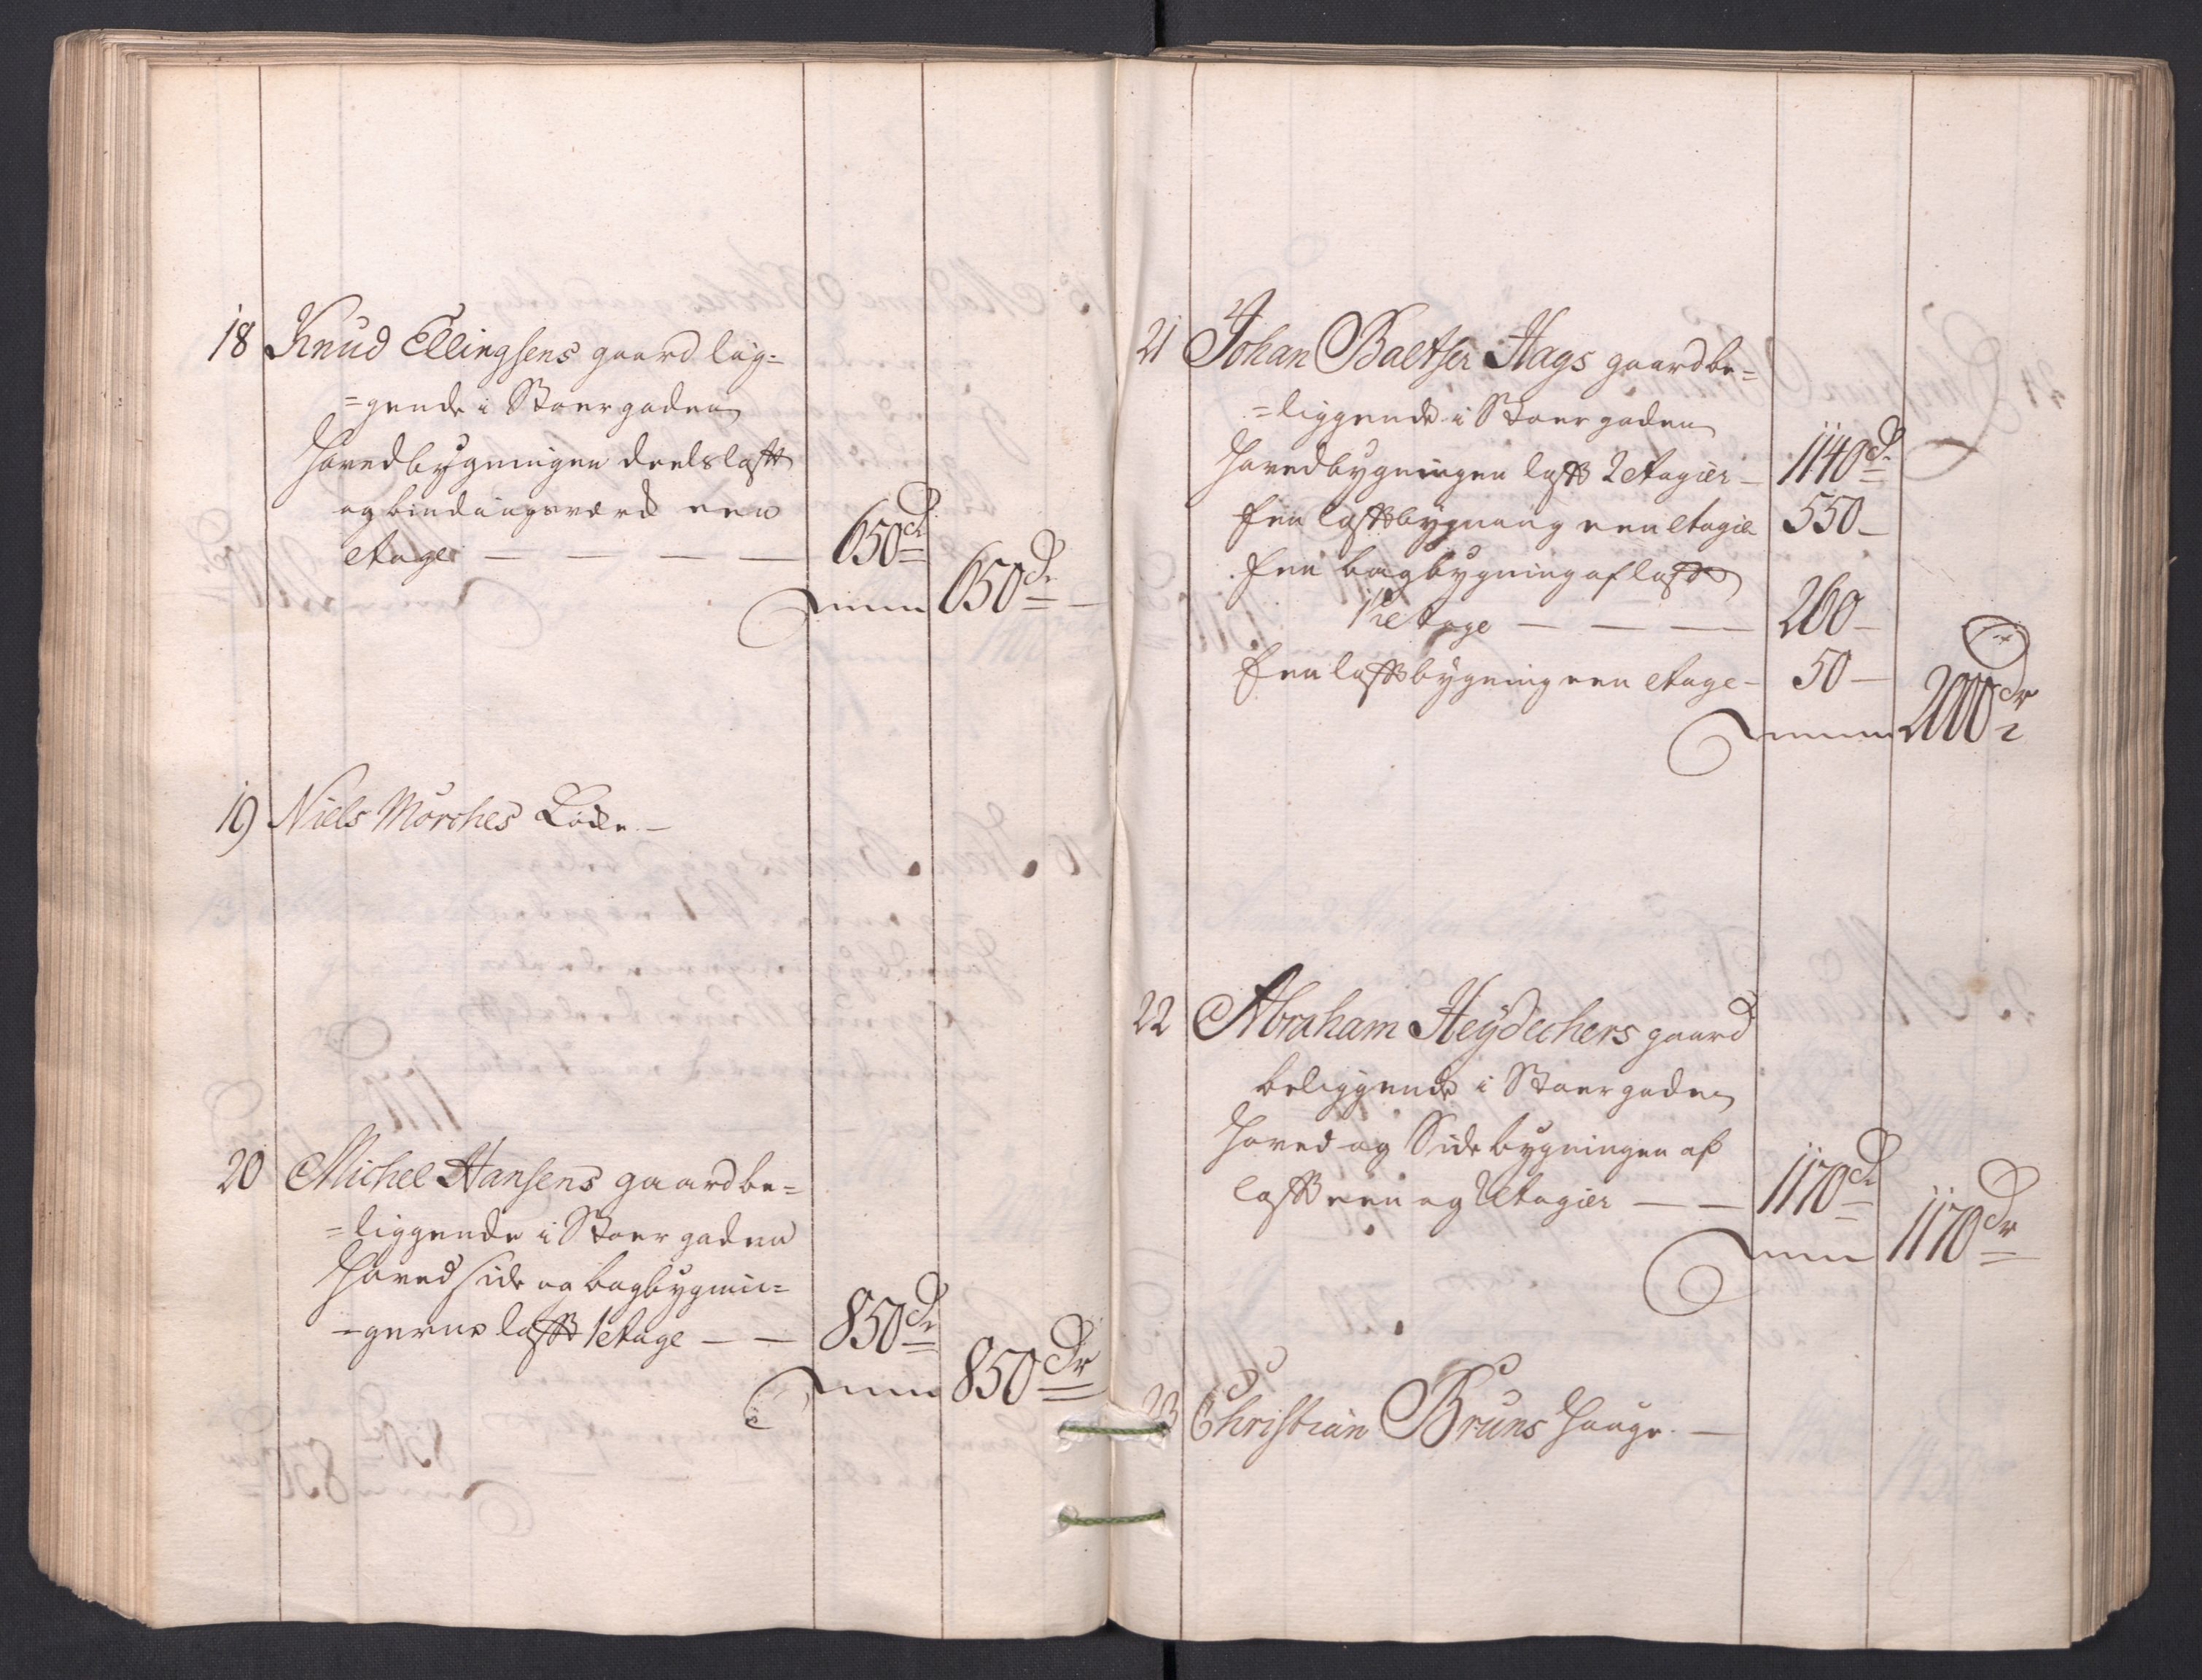 18 Knud Ellingsens gaard lig=
=gende i Stoergaden
Hovedbygningen deels laft
og bindingsværk een
etage — — — — 650 dr
Summa 650 dr
19 Niels Mörches Löcke —
20 Michel Hansens gaard be=
=liggende i Stoergaden
Hoved side og bagbygnin=
=gerne laft 1 etage — — 850 dr
Summa 850 dr
21 Johan Baltser Hags gaard be=
=liggende i Stoergaden
Hovedbygningen laft 2 etagier — 1140 dr
Een laftbygning een etagie 550 —
Een bagbygning af laft
1 etage — — — 260 —
Een laftbygning een etage — 50 —
Summa 2000 dr
22 Abraham Heydechers gaard
beliggende i Stoergaden
Hoved og Sidebygningen af
laft een og 2 etagier — — 1170 dr
Summa 1170 dr
23 Christian Bruns Hauge —